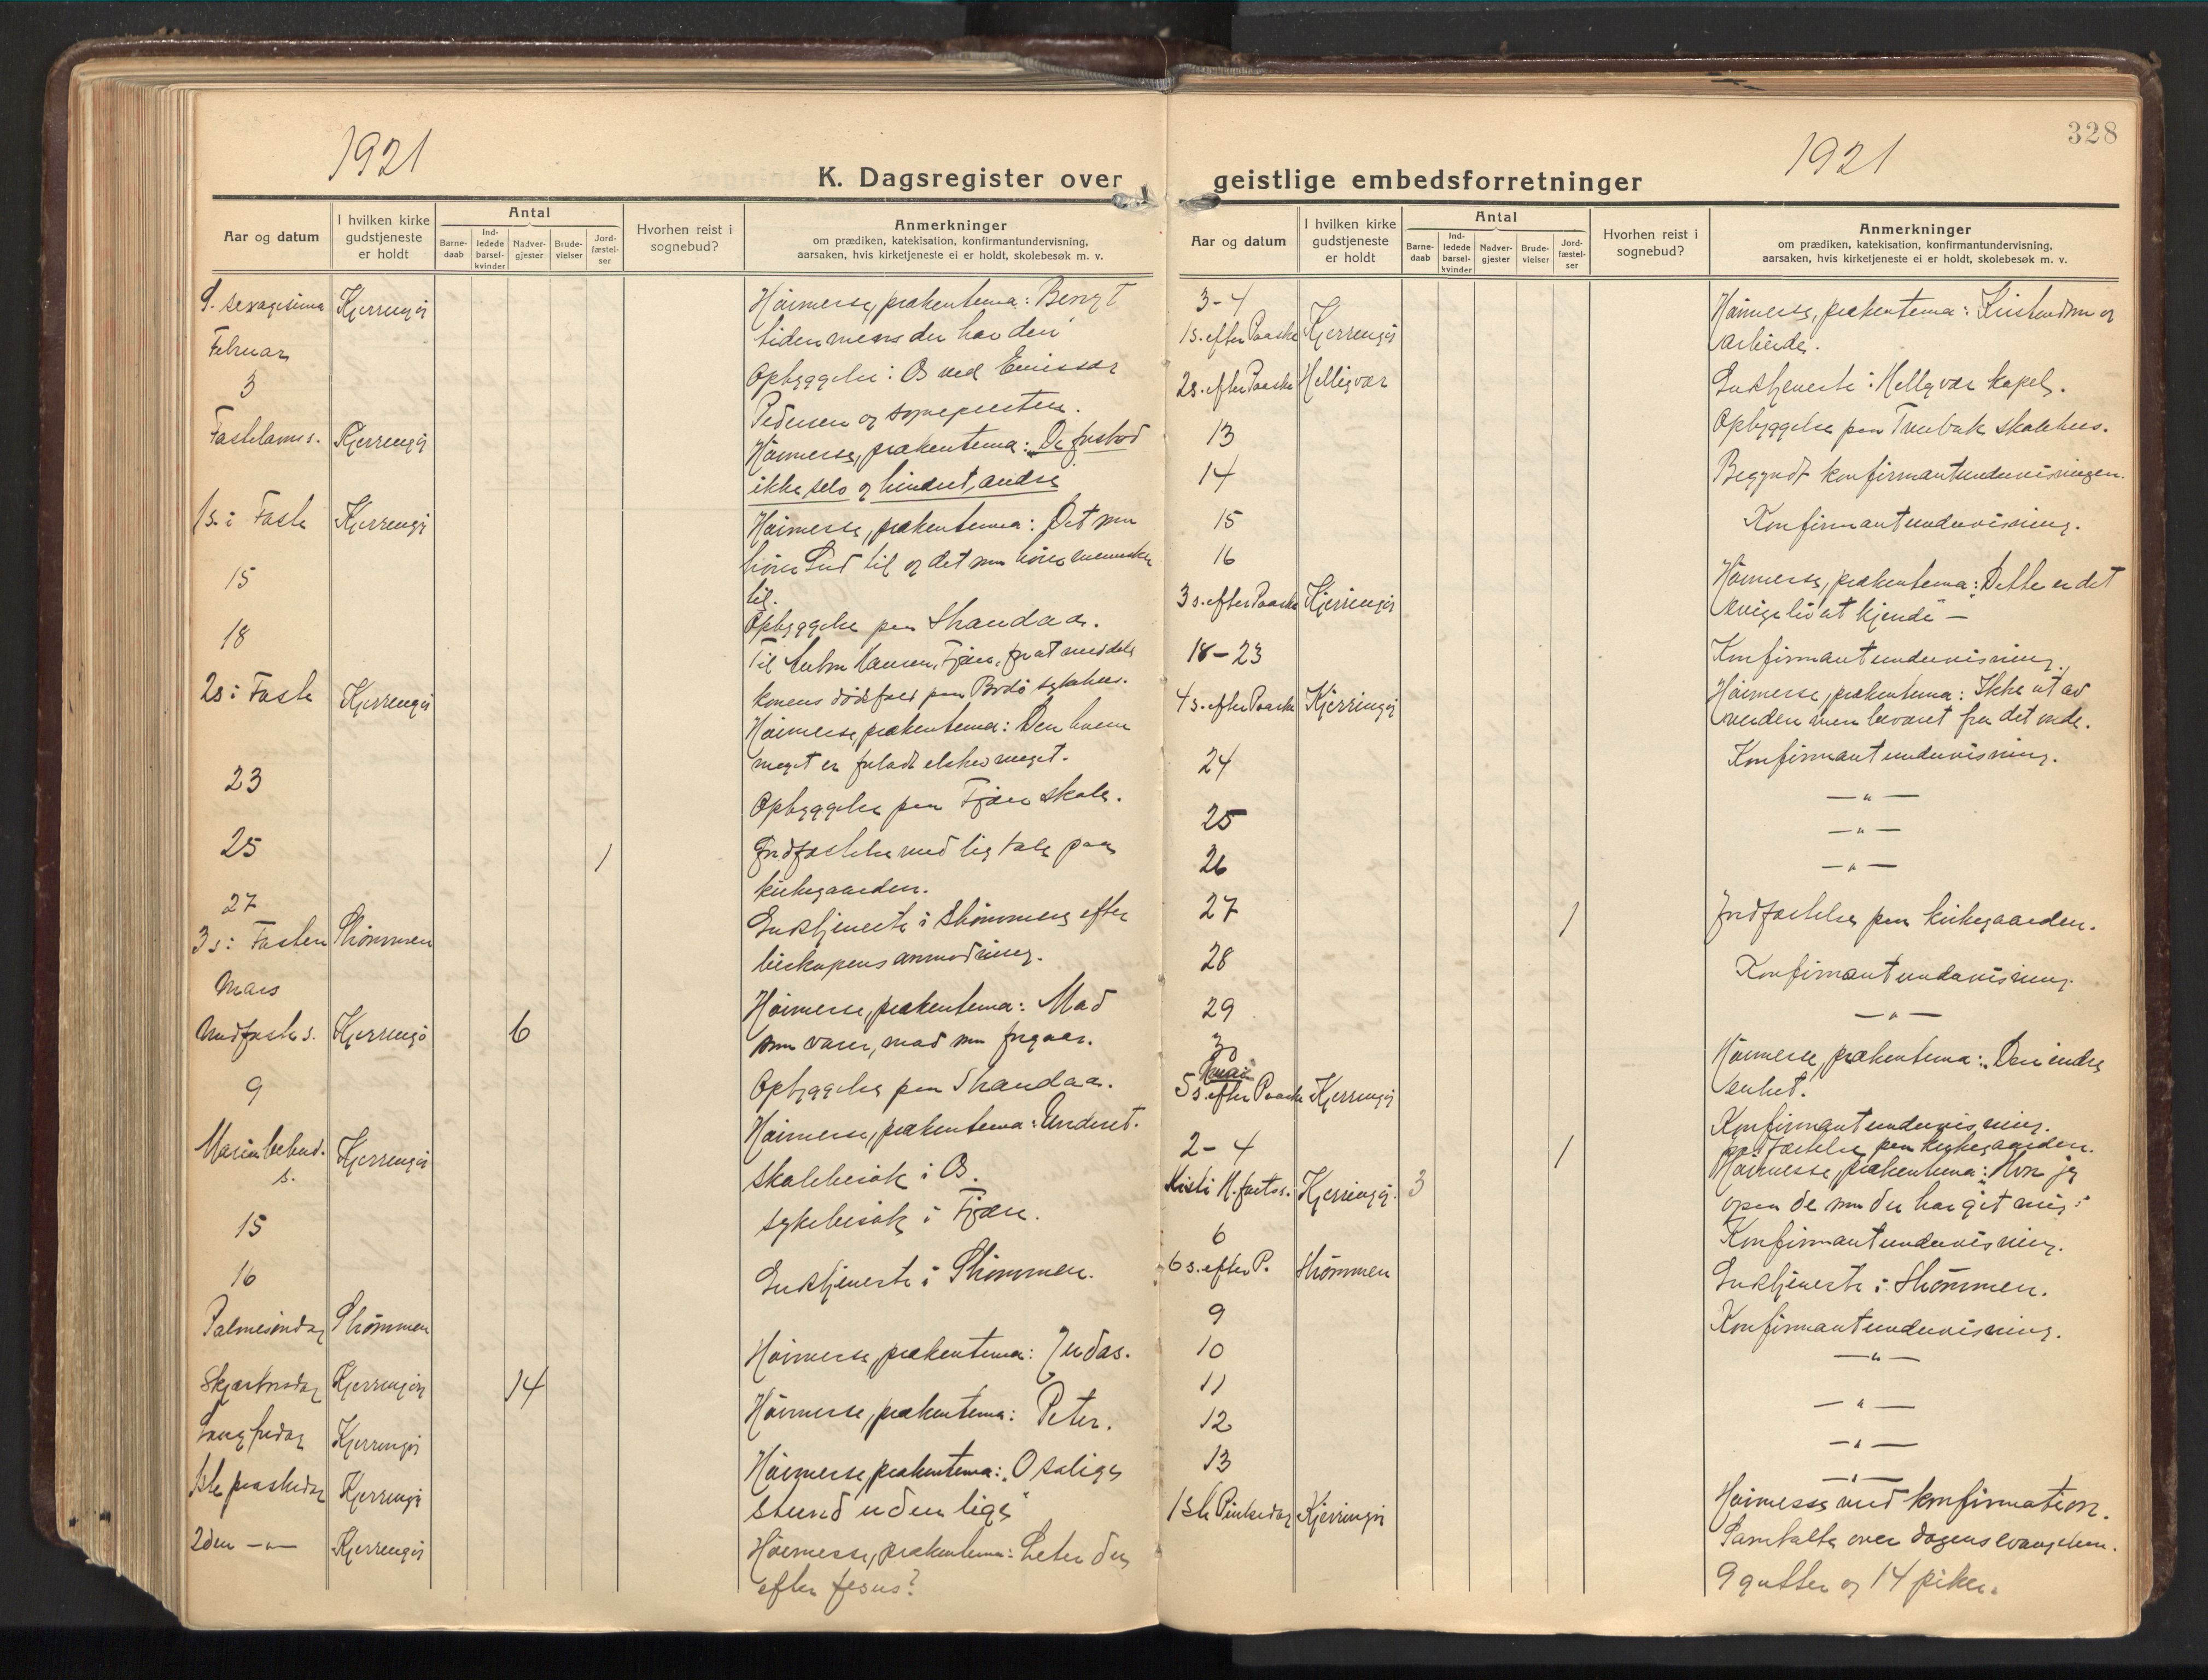 1921
K. Dagsregister over
Aar og datum
I hvilken kirke
gudstjeneste
er holdt
Antal
Barne-
daab
Ind-
ledede
barsel-
kvinder
Nadver-
gjester
Brude-
vielser
Jord-
fæstel-
ser
Hvorhen reist i
sognebud?
Anmerkninger
om prædiken, katekisation, konfirmantundervisning,
aarsaken, hvis kirketjeneste ei er holdt, skolebesøk m. v.
S. sexagesima Kjerringøi Høimesse, prækentema: Benyt
tiden mens du har den
Februar
3 Opbyggelse i Os ved Emissær
Pedersen og sognepresten.
Fastelavns s. Kjerringøi Høimesse, prækentema: De forstod
ikke selv og hindret andre
1 s. i Faste Kjerringøi Høimesse, prækentema: Det som
hører Gud til og det som hører mennesker
til.
15 Opbyggelse paa Strandaa.
18 Til Hansen, Fjære, for at meddele
konens dødsfald paa Bodø sykehus.
2 s. i Faste Kjerringøi Høimesse, prækentema: Den hvem
meget er forladt elsker meget.
23 Opbyggelse paa Fjære skole.
25 1 Jordfæstelse med ligtale paa
kirkegaarden.
27
3 s. i Fasten Strømmen Gudstjeneste i Strømmen efter
biskopens anmodning.
Mars
Midtfaste s. Kjerringø 6 Høimesse, prækentema: Mad
som varer, mad som forgaar.
9 Opbyggelse paa Strandaa.
Maria bebud. s. Kjerringøi Høimesse, prækentema: Underet.
15 Skolebesøk i Os.
16 Sykebesøk i Fjære.
Palmesøndag Strømmen Gudstjeneste i Strømmen.
Skjærtorsdag Kjerringøi 14 Høimesse, prækentema: Judas.
Langfredag Kjerringøi Høimesse, prækentema: Peter.
1ste paaskedag Kjerringøi Høimesse, prækentema: "O salige
stund uden lige"
2den —"— Kjerringøi Høimesse, prækentema: Leter du
efter Jesus?
328
1921
geistlige embedsforretninger
Aar og datum
I hvilken kirke
gudstjeneste
er holdt
Antal
Barne-
daab
Ind-
ledede
barsel-
kvinder
Nadver-
gjester
Brude-
vielser
Jord-
fæstel-
ser
Hvorhen reist i
sognebud?
Anmerkninger
om prædiken, katekisation, konfirmantundervisning,
aarsaken, hvis kirketjeneste ei er holdt, skolebesøk m. v.
3-4
1 s. efter Paaske Kjerringøi Høimesse, prækentema: Kristendom og
arbeide.
2 s. efter Paaske Helligvær Gudstjeneste i Helligvær kapel.
13 Opbyggelse paa skolehus.
14 Begyndt konfirmantundervisningen.
15 Konfirmantundervisning.
16
3 s. efter Paaske Kjerringøi Høimesse, prækentema: "Dette er det
evige liv at kjende" —
18-23 Konfirmantundervisning.
4 s. efter Paaske Kjerringøi Høimesse, prækentema: Ikke ut av
verden men bevaret fra det onde.
24 Konfirmantundervisning.
25 —"—
26 —"—
—"—
27 1 Jordfæstelse paa kirkegaarden.
28 Konfirmantundervisning.
29 —"—
30
Mai
5 s. efter Paaske Kjerringøi Høimesse, prækentema: Den indre
enhet.
2-4 1 Konfirmantundervisning.
Jordfæstelse paa kirkegaarden.
Kristi H. fartsd. Kjerringøi. 3 Høimesse, prækentema: "Hvor jeg
er og de som du har git mig"
6 Konfirmantundervisning.
6 s. efter P. Strømmen Gudstjeneste i Strømmen.
9 Konfirmantundervisning.
10 —"—
11 —"—
12 —"—
13 —"—
1ste Pinsedag Kjerringøi Høimesse med konfirmation.
Samtalte over dagens evangelium.
9 gutter og 14 piker.